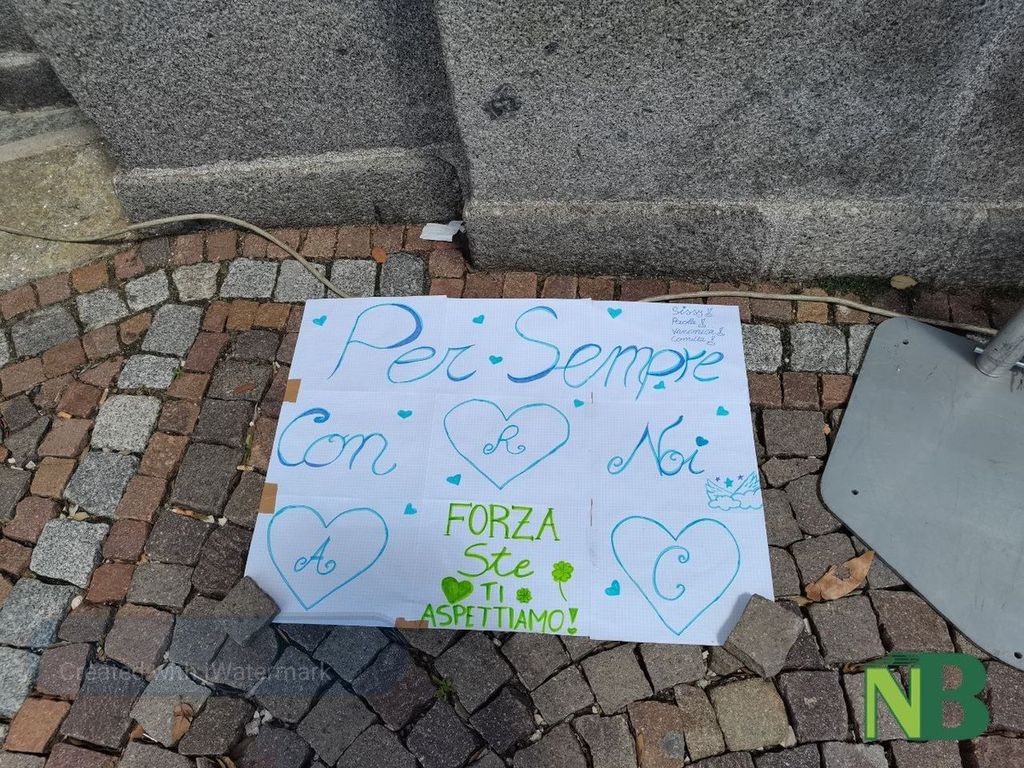 Per Sempre
Sissy
Paola
Veronica
Camilla
Con
R
Noi
A
FORZA
Ste
TI
ASPETTIAMO!
C
Created with iWatermark
NB